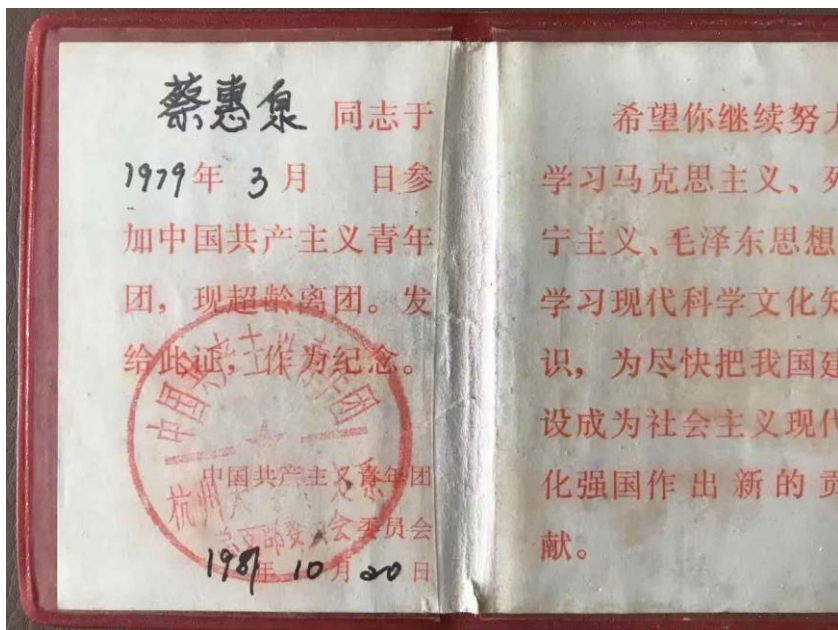 蔡惠泉 同志于
1979年 3月 日参
加中国共产主义青年
团，现超龄离团。发
给此证，作为纪念。
中国共产主义青年团
中国共产主义青年团
杭州大学
总支部委员会
委员会
1981年 10月 20日
希望你继续努
学习马克思主义、
宁主义、毛泽东思想
学习现代科学文化知
识，为尽快把我国建
设成为社会主义现代
化强国作出新的贡
献。